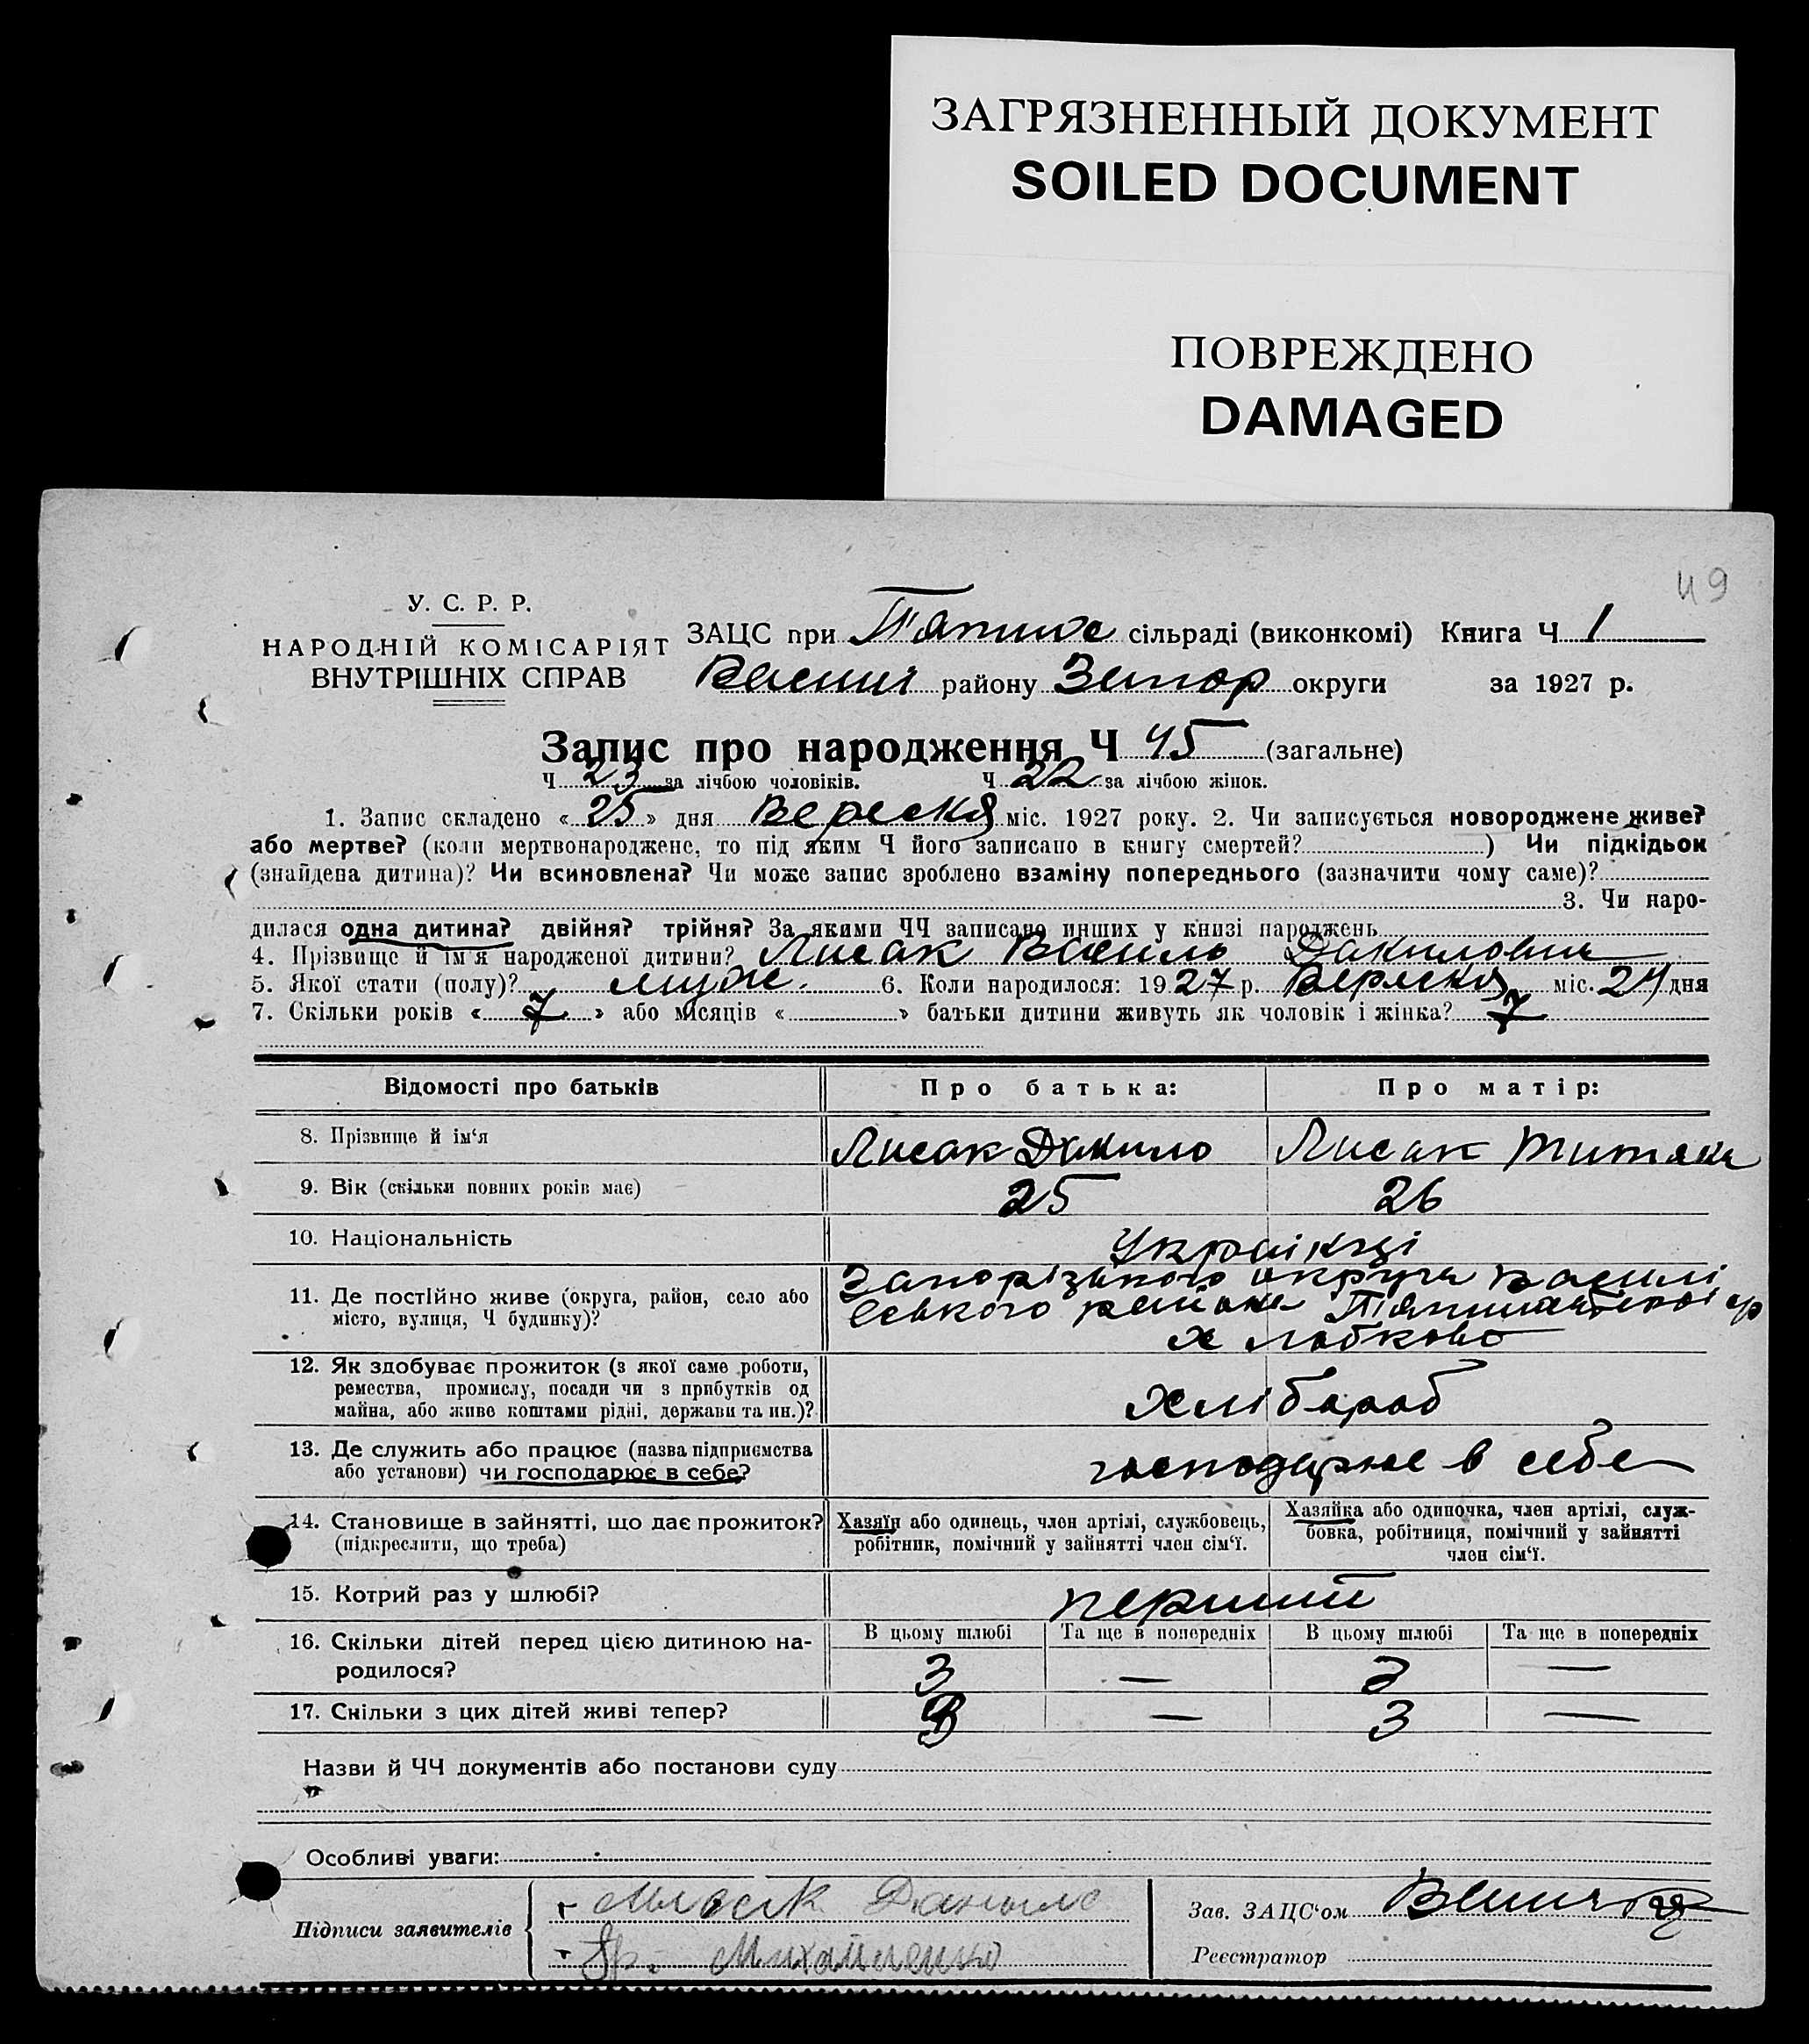 ЗАГРЯЗНЕННЫЙ ДОКУМЕНТ
SOILED DOCUMENT
ПОВРЕЖДЕНО
DAMAGED
49
У. С. Р. Р.
НАРОДНІЙ КОМІСАРІЯТ
ВНУТРІШНІХ СПРАВ
ЗАЦС при сільраді (виконкомі) Книга Ч 1
району Запор округи за 1927 р.
Запис про народження Ч 45 (загальне)
Ч 23 за лічбою чоловіків. Ч 22 за лічбою жінок.
1. Запис складено « 25 » дня Вересня міс. 1927 року. 2. Чи записується новороджене живе?
або мертве? (коли мертвонароджене, то під яким Ч його записано в книгу смертей? ) Чи підкідьок
(знайдена дитина)? Чи всиновлена? Чи може запис зроблено взаміну попереднього (зазначити чому саме)?
3. Чи наро-
дилася одна дитина? двійня? трійня? За якими ЧЧ записано инших у книзі народжень
4. Прізвище й ім'я народженої дитини? Лисак Василь Данилович
5. Якої стати (полу)? муж. 6. Коли народилося: 1927 р. Вересня міс. 24 дня
7. Скільки років « 7 » або місяців « » батьки дитини живуть як чоловік і жінка? 7
Відомості про батьків Про батька: Про матір:
8. Прізвище й ім'я Лисак Данило Лисак
9. Вік (скільки повних років має) 25 26
10. Національність Українці
11. Де постійно живе (округа, район, село або
місто, вулиця, Ч будинку)?
Запорізького округа Василі
вського района ср
х Лобково
12. Як здобуває прожиток (з якої саме роботи,
ремества, промислу, посади чи з прибутків од
майна, або живе коштами рідні, держави та ин.)?
хлібороб
13. Де служить або працює (назва підприємства
або установи) чи господарює в себе?
господарює в себе
14. Становище в зайнятті, що дає прожиток?
(підкреслити, що треба)
Хазяїн або одинець, член артілі, службовець,
робітник, помічний у зайнятті член сім'ї.
Хазяйка або одиночка, член артілі, служ-
бовка, робітниця, помічний у зайнятті
член сім'ї.
15. Котрий раз у шлюбі? перший
16. Скільки дітей перед цією дитиною на-
родилося?
В цьому шлюбі Та ще в попередніх В цьому шлюбі Та ще в попередніх
3 — 3 —
17. Скільки з цих дітей живі тепер? 3 — 3 —
Назви й ЧЧ документів або постанови суду
Особливі уваги:
Підписи заявителів
Данило
Михайленко
Зав. ЗАЦС'ом
Реєстратор